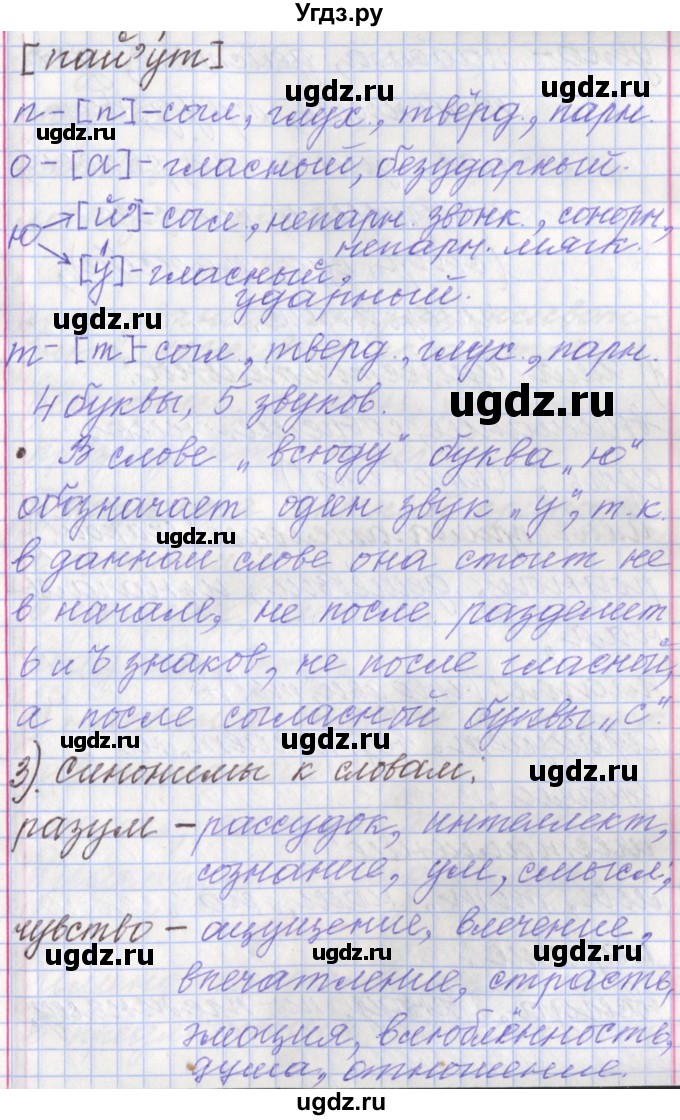 Угдз.ру
[пай'у́т]
ugdz.ru ugdz.ru
п - [п] - согл, глух., твёрд., парн.
о - [а] - гласный, безударный.
ugdz.ru ugdz.ru
ю [й'] - согл, непарн. звонк., сонорн,
непарн. мягк.
[у́] - гласный,
ударный.
ugdz.ru
т - [т] - согл, тверд., глух., парн.
4 буквы, 5 звуков.
ugdz.ru
• В слове „всюду" буква „ю"
обозначает один звук „у", т.к.
ugdz.ru
в данном слове она стоит не
в начале, не после разделит
ь и ъ знаков, не после гласной,
а после согласной буквы „с".
ugdz.ru ugdz.ru
3). Синонимы к словам:
ugdz.ru
разум - рассудок, интеллект,
сознание, ум, смысл;
чувство - ощущение, влечение,
ugdz.ru ugdz.ru ugdz.ru
впечатление, страсть,
эмоция, влюблённость,
душа, отношение.
ugdz.ru ugdz.ru